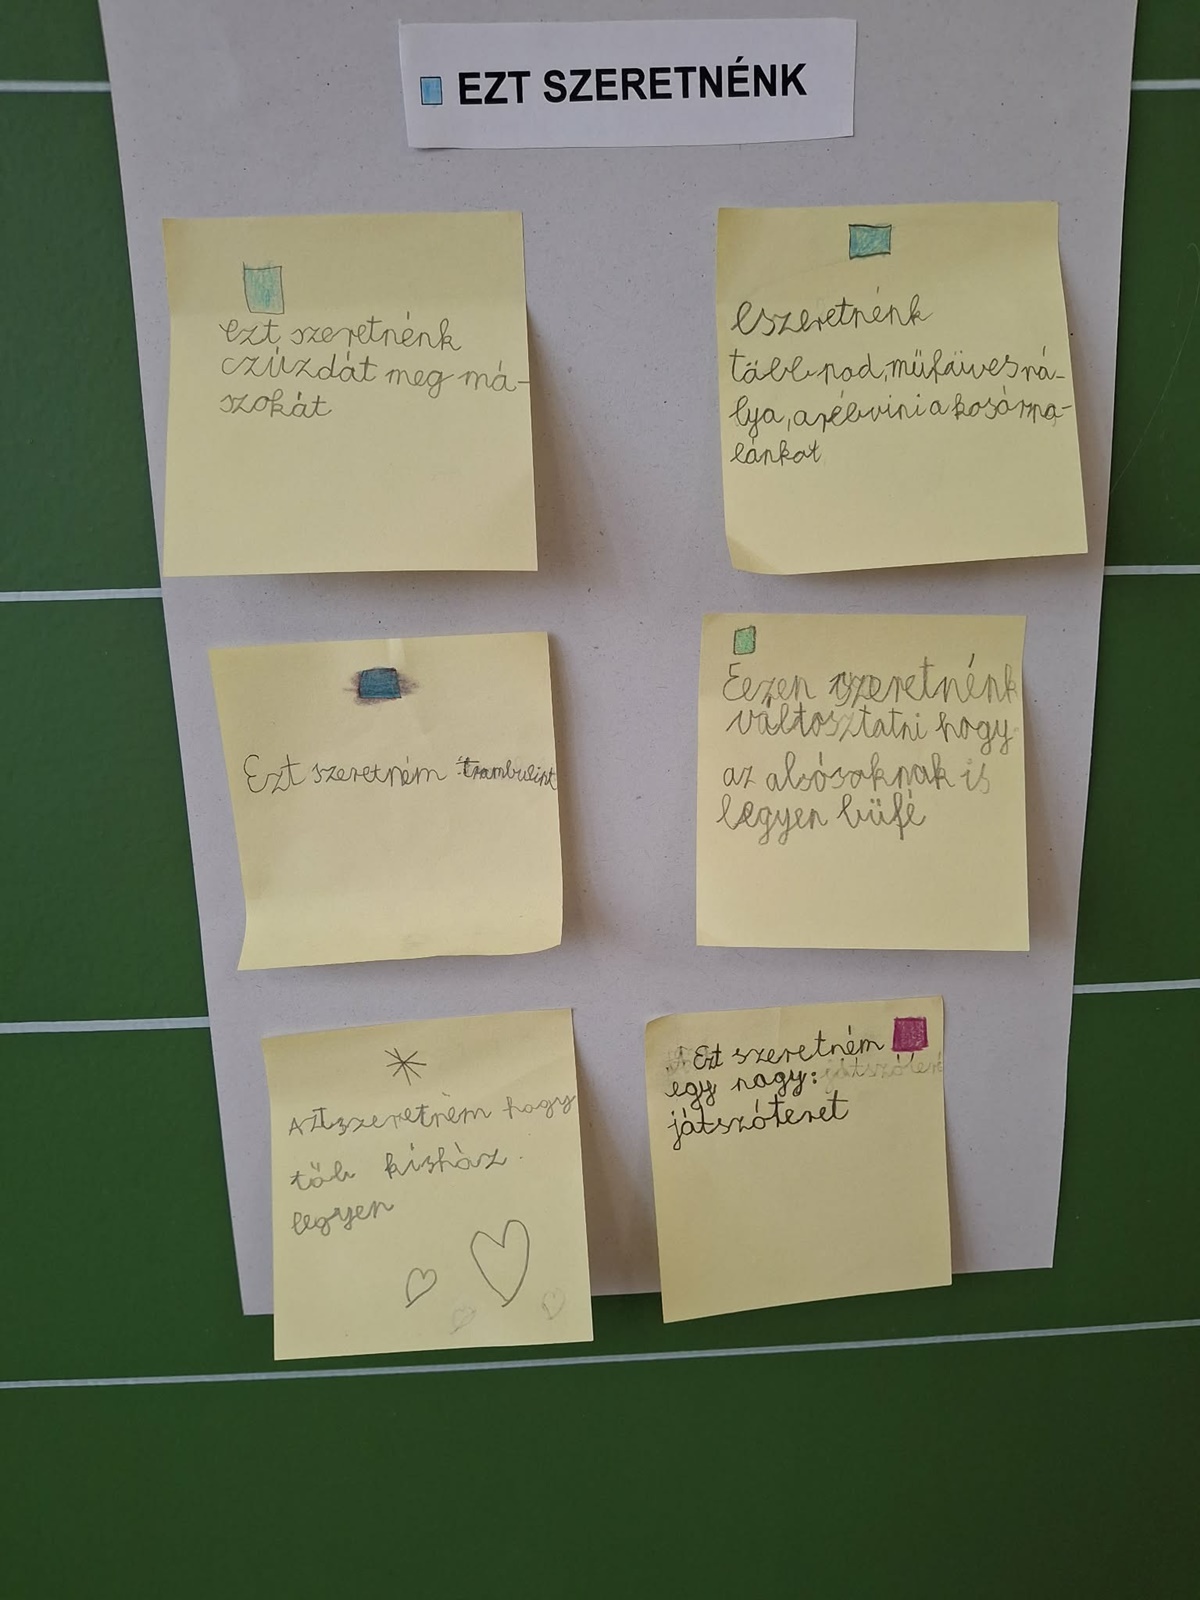 EZT SZERETNÉNK
ezt szeretnénk
czúzdát meg má-
szokát
eszeretnénk
több pad, műfüives pá-
lya, arébvini a kosárpa-
lánkot
Ezt szeretném trambulint
Eezen szeretnénk
változtatni hogy
az alsósoknak is
legyen büfé
Aztszeretném hogy
töb kisház.
legyen
Ezt szeretném
egy nagy: játszóteret
játszóteret